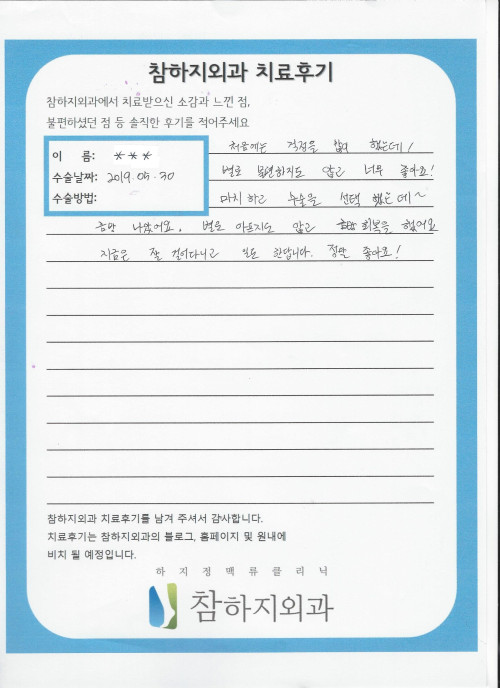 참하지외과 치료후기
참하지외과에서 치료받으신 소감과 느낀 점,
불편하셨던 점 등 솔직한 후기를 적어주세요
이 름: ***
수술날짜: 2019.05.30
수술방법:
처음에는 걱정을 많이 했는데!
별로 불편하지도 않고 너무 좋아요!
마치하고 수술을 선택 했는데~
금방 나았어요. 별로 아프지도 않고 회복을 했어요
지금은 잘 걸어다니고 일도 한답니다. 정말 좋아요!
참하지외과 치료후기를 남겨 주셔서 감사합니다.
치료후기는 참하지외과의 블로그, 홈페이지 및 원내에
비치 될 예정입니다.
하지정맥류클리닉
참하지외과